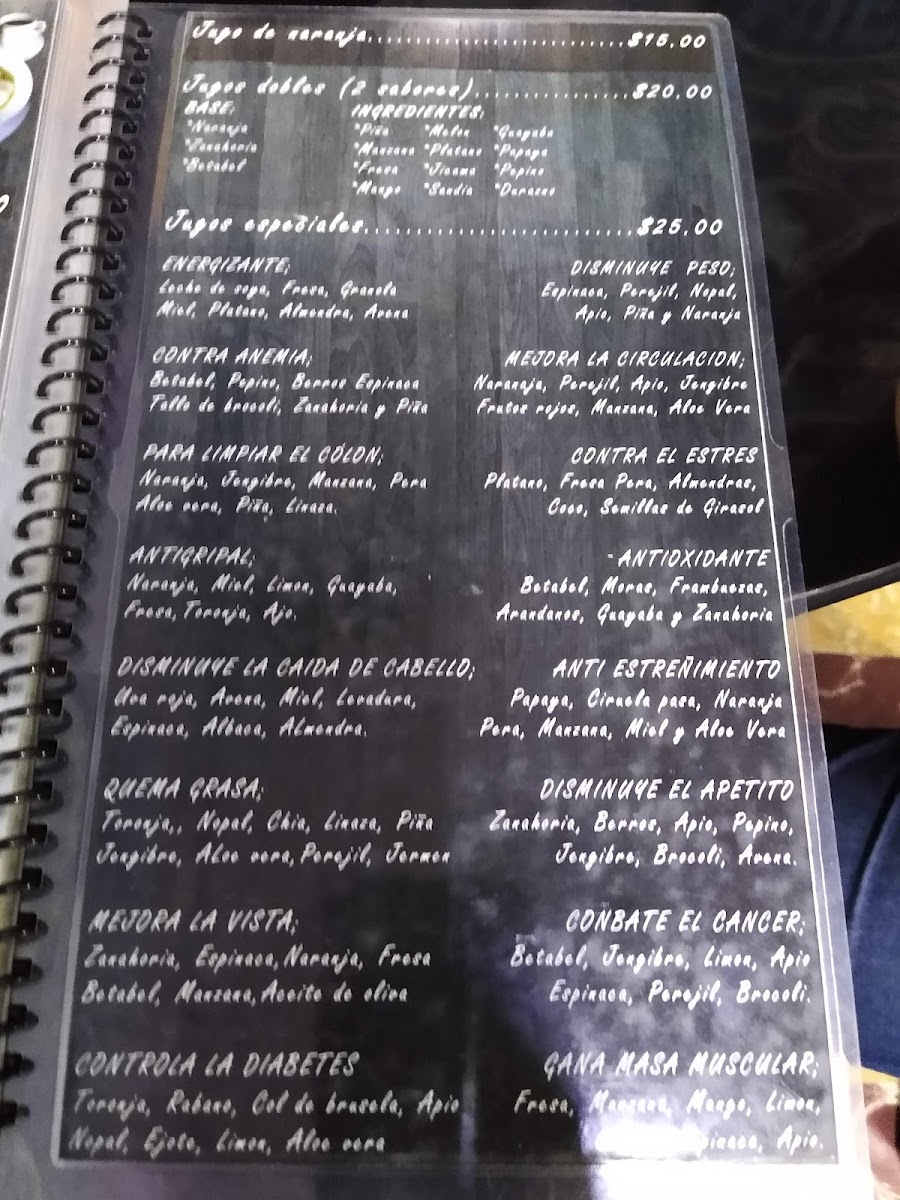 Jugo de naranja...........................$15.00
Jugos dobles (2 sabores)................$20.00
BASE:
*Naranja
*Zanahoria
*Betabel
INGREDIENTES:
*Piña *Melon *Guayaba
*Manzana *Platano *Papaya
*Fresa *Jicama *Pepino
*Mango *Sandia *Durazno
Jugos especiales...........................$25.00
ENERGIZANTE;
Leche de soya, Fresa, Granola
Miel, Platano, Almendra, Avena
DISMINUYE PESO;
Espinaca, Perejil, Nopal,
Apio, Piña y Naranja
CONTRA ANEMIA;
Betabel, Pepino, Berros Espinaca
Tallo de brocoli, Zanahoria y Piña
MEJORA LA CIRCULACION;
Naranaja, Perejil, Apio, Jengibre
Frutos rojos, Manzana, Aloe Vera
PARA LIMPIAR EL COLON;
Naranja, Jengibre, Manzana, Pera
Aloe vera, Piña, Linaza.
CONTRA EL ESTRES
Platano, Fresa Pera, Almendras,
Coco, Semillas de Girasol
ANTIGRIPAL;
Naranja, Miel, Limon, Guayaba,
Fresa, Toronja, Ajo.
-ANTIOXIDANTE
Betabel, Moras, Frambuezas,
Arandanos, Guayaba y Zanahoria
DISMINUYE LA CAIDA DE CABELLO;
Uva roja, Avena, Miel, Levadura,
Espinaca, Albaca, Almendra.
ANTI ESTREÑIMIENTO
Papaya, Ciruela pasa, Naranja
Pera, Manzana, Miel y Aloe Vera
QUEMA GRASA;
Toronja,, Nopal, Chia, Linaza, Piña
Jengibre, ALoe vera, Perejil, Jermen
DISMINUYE EL APETITO
Zanahoria, Berros, Apio, Pepino,
Jengibre, Brocoli, Avena.
MEJORA LA VISTA;
Zanahoria, Espinaca, Naranja, Fresa
Betabel, Manzana, Aceite de oliva
CONBATE EL CANCER;
Betabel, Jengibre, Limon, Apio
Espinaca, Perejil, Brocoli.
CONTROLA LA DIABETES
Toronja, Rabano, Col de brusela, Apio
Nopal, Ejote, Limon, Aloe vera
GANA MASA MUSCULAR;
Fresa, Manzana, Mango, Limon,
Espinaca, Apio.